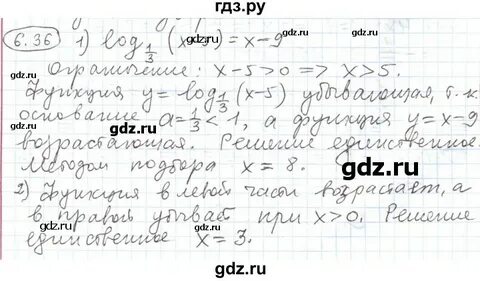 гдз.ру
6.36 1) log_{1/3} (x-5) = x-9
Ограничение: x-5>0 => x>5.
Функция y=log_{1/3}(x-5) убывающая, т.к
основание a=1/3<1, а функция y=x-9
возрастающая. Решение единственное.
Методом подбора x=8.
2) Функция в левой части возрастает, а
в правой убывает при x>0. Решение
единственное x=3.
gdz.ru
gdz.ru
gdz.ru
gdz.ru
gdz.ru
gdz.ru